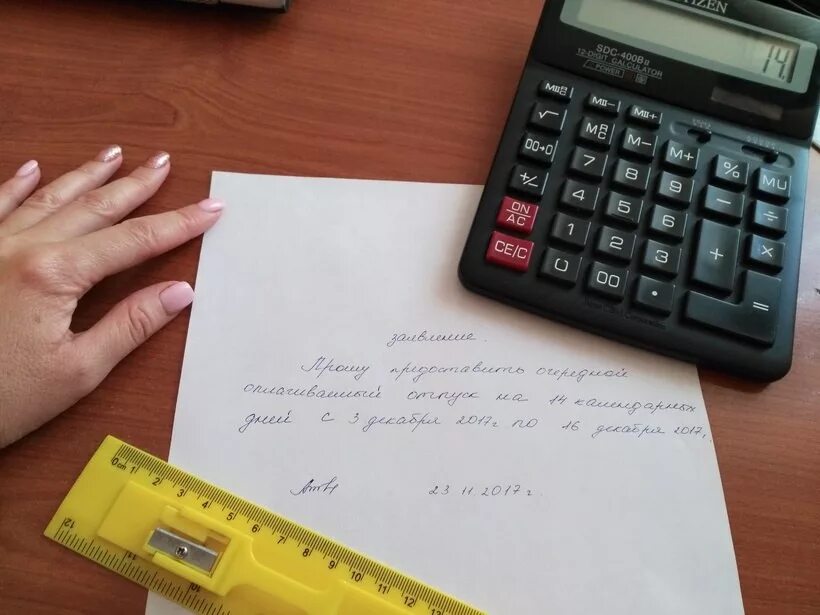 CITIZEN
14
SDC-400BII
12-DIGIT CALCULATOR
POWER
MII MII− MII+
√ M M− M+ % MU
00→0 7 8 9 − ÷
+/− 4 5 6 + ×
ON/AC 1 2 3 =
CE/C 0 00 •
заявление.
Прошу предоставить очередной
оплачиваемый отпуск на 14 календарных
дней с 3 декабря 2017г по 16 декабря 2017г
23.11.2017г.
0cm 1 2 3 4 5 6 7 8 9 10 11 12 13
12 11 10